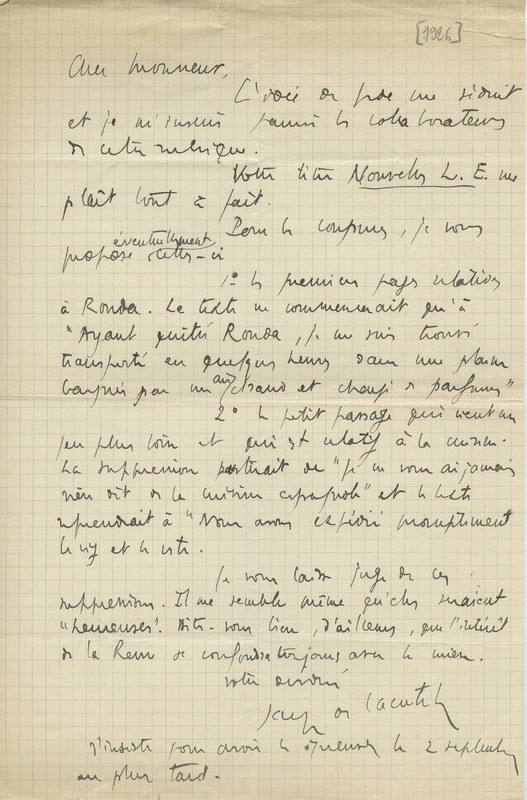 [1926]
Cher Monsieur,
L'idée de me séduit
et je m'inscris parmi les collaborateurs
de cette rubrique.
Votre titre Nouvelles L. E. me
plaît tout à fait.
Pour les coupures, je vous
propose éventuellement celles-ci
1° les premières pages relatives
à Ronda. Le texte ne commencerait qu'à
"Ayant quitté Ronda, je me suis trouvé
transporté en quelques heures dans une plaine
baignée par un air chaud et chargé de parfums"
2° le petit passage qui vient un
peu plus loin et qui est relatif à la cuisine.
La suppression partirait de "Je ne vous ai jamais
rien dit de la cuisine espagnole" et le texte
reprendrait à "Nous avons expédié promptement
le et le .
Je vous laisse juge de ces
suppressions. Il me semble même qu'elles seraient
"heureuses". Dites-vous bien, d'ailleurs, que l'intérêt
de la Revue se confondra toujours avec le mien.
votre dévoué
Jacques de Lacretelle
J'insiste pour avoir les épreuves le 2 septembre
au plus tard.